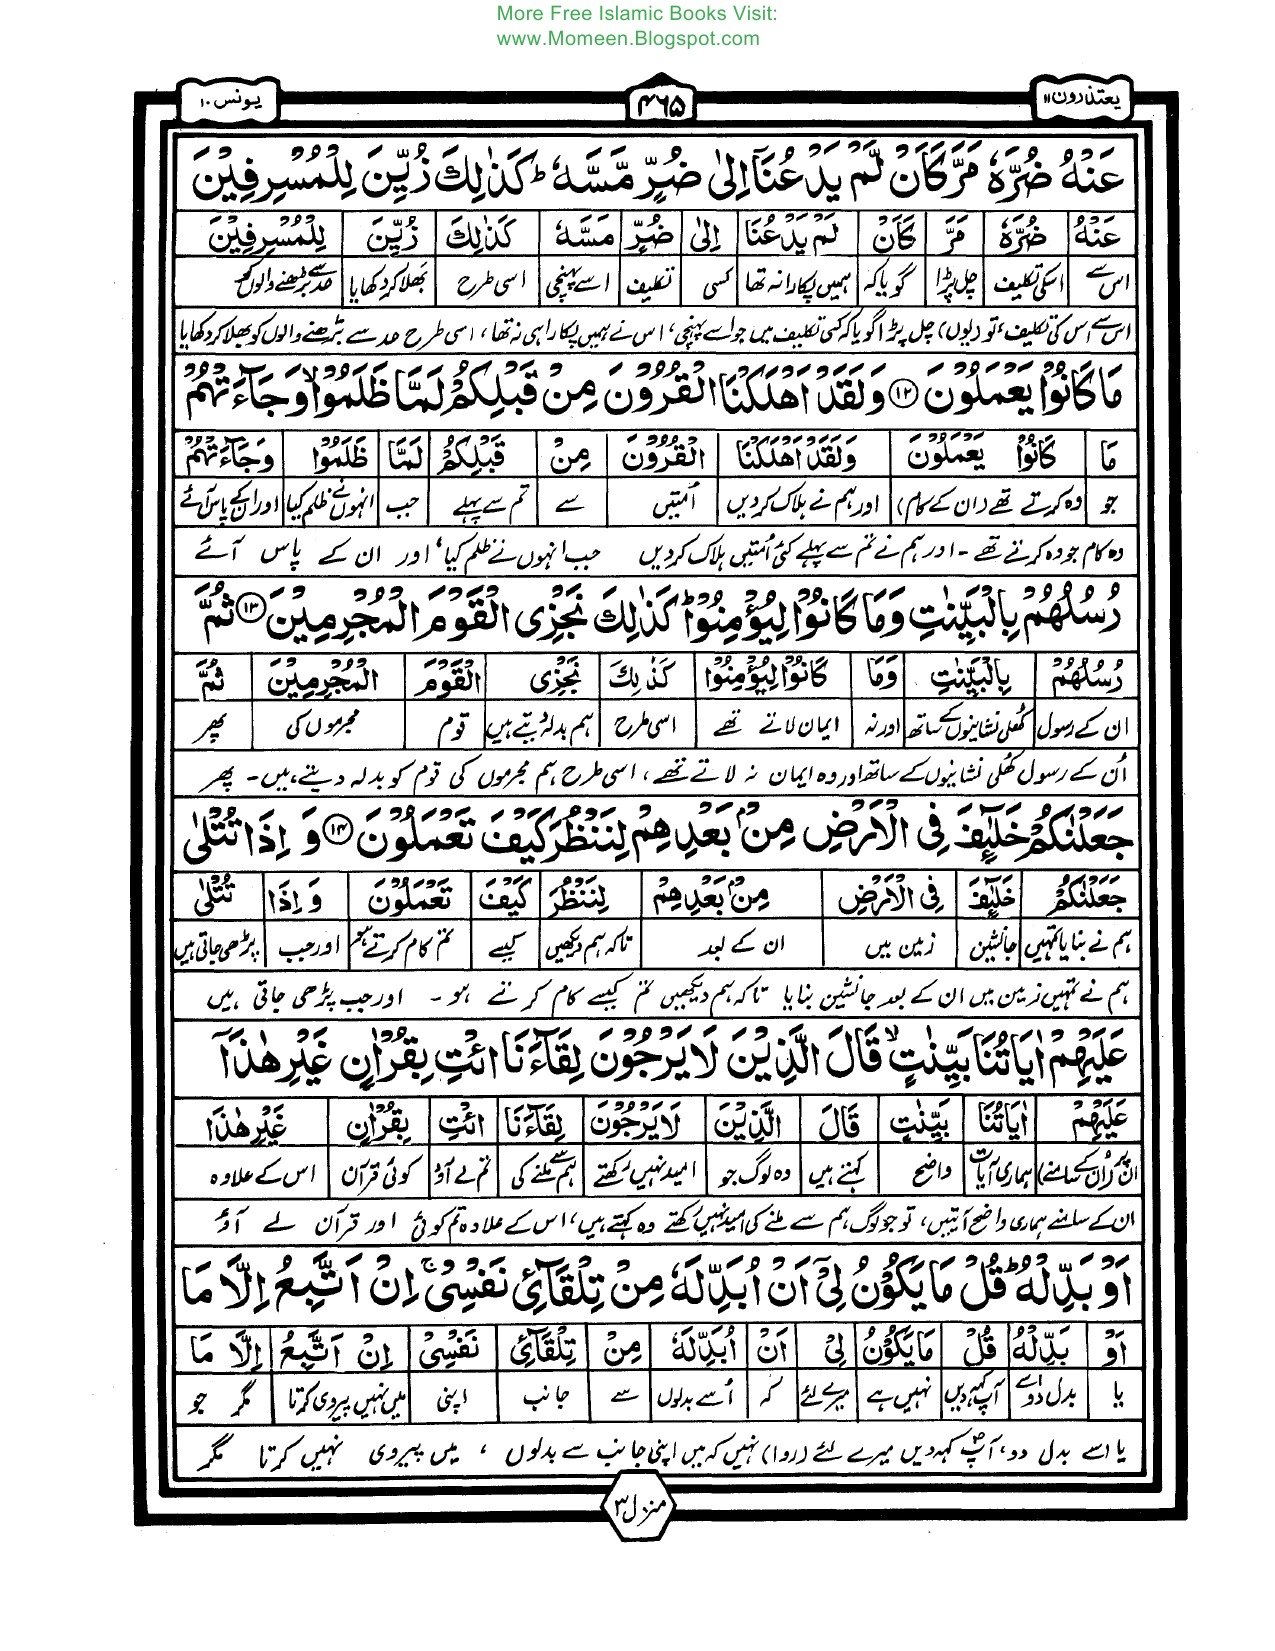 More Free Islamic Books Visit:
www.Momeen.Blogspot.com
یعتذرون ۱۱ ۴۶۵ یونس ۱۰
عَنْهُ ضُرَّهٗ مَرَّ كَاَنْ لَّمْ يَدْعُنَآ اِلٰى ضُرٍّ مَّسَّهٗ ؕ كَذٰلِكَ زُيِّنَ لِلْمُسْرِفِيْنَ
عَنْهُ ضُرَّهٗ مَرَّ كَاَنْ لَمْ يَدْعُنَا اِلٰى ضُرٍّ مَسَّهٗ كَذٰلِكَ زُيِّنَ لِلْمُسْرِفِيْنَ
اس سے اسکی تکلیف چل پڑا گویا کہ ہمیں پکارا نہ تھا کسی تکلیف اسے پہنچی اسی طرح بھلا کر دکھایا حد سے بڑھنے والوں کو
اس سے اس کی تکلیف، تو (یوں) چل پڑا گویا کہ کسی تکلیف میں جو اسے پہنچی، اس نے ہمیں پکارا ہی نہ تھا، اسی طرح حد سے بڑھنے والوں کو بھلا کر دکھایا
مَا كَانُوْا يَعْمَلُوْنَ ۱۲ وَلَقَدْ اَهْلَكْنَا الْقُرُوْنَ مِنْ قَبْلِكُمْ لَمَّا ظَلَمُوْا ۙ وَجَآءَتْهُمْ
مَا كَانُوْا يَعْمَلُوْنَ وَلَقَدْ اَهْلَكْنَا الْقُرُوْنَ مِنْ قَبْلِكُمْ لَمَّا ظَلَمُوْا وَجَآءَتْهُمْ
جو وہ کرتے تھے (ان کے کام) اور ہم نے ہلاک کر دیں اُمتیں سے تم سے پہلے جب انہوں نے ظلم کیا اور ان کے پاس آئے
وہ کام جو وہ کرتے تھے - اور ہم نے تم سے پہلے کئی اُمتیں ہلاک کر دیں جب انہوں نے ظلم کیا، اور ان کے پاس آئے
رُسُلُهُمْ بِالْبَيِّنٰتِ وَمَا كَانُوْا لِيُؤْمِنُوْا ؕ كَذٰلِكَ نَجْزِى الْقَوْمَ الْمُجْرِمِيْنَ ۱۳ ثُمَّ
رُسُلُهُمْ بِالْبَيِّنٰتِ وَمَا كَانُوْا لِيُؤْمِنُوْا كَذٰلِكَ نَجْزِى الْقَوْمَ الْمُجْرِمِيْنَ ثُمَّ
ان کے رسول کھلی نشانیوں کے ساتھ اور نہ ایمان لاتے تھے اسی طرح ہم بدلہ دیتے ہیں قوم مجرموں کی پھر
اُن کے رسول کھلی نشانیوں کے ساتھ اور وہ ایمان نہ لاتے تھے، اسی طرح ہم مجرموں کی قوم کو بدلہ دیتے ہیں - پھر
جَعَلْنٰكُمْ خَلٰٓئِفَ فِى الْاَرْضِ مِنْۢ بَعْدِهِمْ لِنَنْظُرَ كَيْفَ تَعْمَلُوْنَ ۱۴ وَ اِذَا تُتْلٰى
جَعَلْنٰكُمْ خَلٰٓئِفَ فِى الْاَرْضِ مِنْۢ بَعْدِهِمْ لِنَنْظُرَ كَيْفَ تَعْمَلُوْنَ وَ اِذَا تُتْلٰى
ہم نے بنایا تمہیں جانشین زمین میں ان کے بعد تاکہ ہم دیکھیں کیسے تم کام کرتے ہو اور جب پڑھی جاتی ہیں
ہم نے تمہیں زمین میں ان کے بعد جانشین بنایا تاکہ ہم دیکھیں تم کیسے کام کرتے ہو - اور جب پڑھی جاتی ہیں
عَلَيْهِمْ اٰيَاتُنَا بَيِّنٰتٍ ۙ قَالَ الَّذِيْنَ لَا يَرْجُوْنَ لِقَآءَنَا ائْتِ بِقُرْاٰنٍ غَيْرِ هٰذَآ
عَلَيْهِمْ اٰيَاتُنَا بَيِّنٰتٍ قَالَ الَّذِيْنَ لَا يَرْجُوْنَ لِقَآءَنَا ائْتِ بِقُرْاٰنٍ غَيْرِ هٰذَا
ان پر (اُن کے سامنے) ہماری آیات واضح کہتے ہیں وہ لوگ جو امید نہیں رکھتے ہم سے ملنے کی تم لے آؤ کوئی قرآن اس کے علاوہ
ان کے سامنے ہماری واضح آیتیں، تو جو لوگ ہم سے ملنے کی امید نہیں رکھتے وہ کہتے ہیں، اس کے علاوہ تم کوئی اور قرآن لے آؤ
اَوْ بَدِّلْهُ ؕ قُلْ مَا يَكُوْنُ لِىْٓ اَنْ اُبَدِّلَهٗ مِنْ تِلْقَآئِ نَفْسِىْ ۚ اِنْ اَتَّبِعُ اِلَّا مَا
اَوْ بَدِّلْهُ قُلْ مَا يَكُوْنُ لِىْ اَنْ اُبَدِّلَهٗ مِنْ تِلْقَآئِ نَفْسِىْ اِنْ اَتَّبِعُ اِلَّا مَا
یا بدل دو اسے آپ کہہ دیں نہیں ہے میرے لئے کہ اُسے بدلوں سے جانب اپنی میں نہیں پیروی کرتا مگر جو
یا اسے بدل دو، آپؐ کہہ دیں میرے لئے (روا) نہیں کہ میں اپنی جانب سے بدلوں، میں پیروی نہیں کرتا مگر
منزل ۳